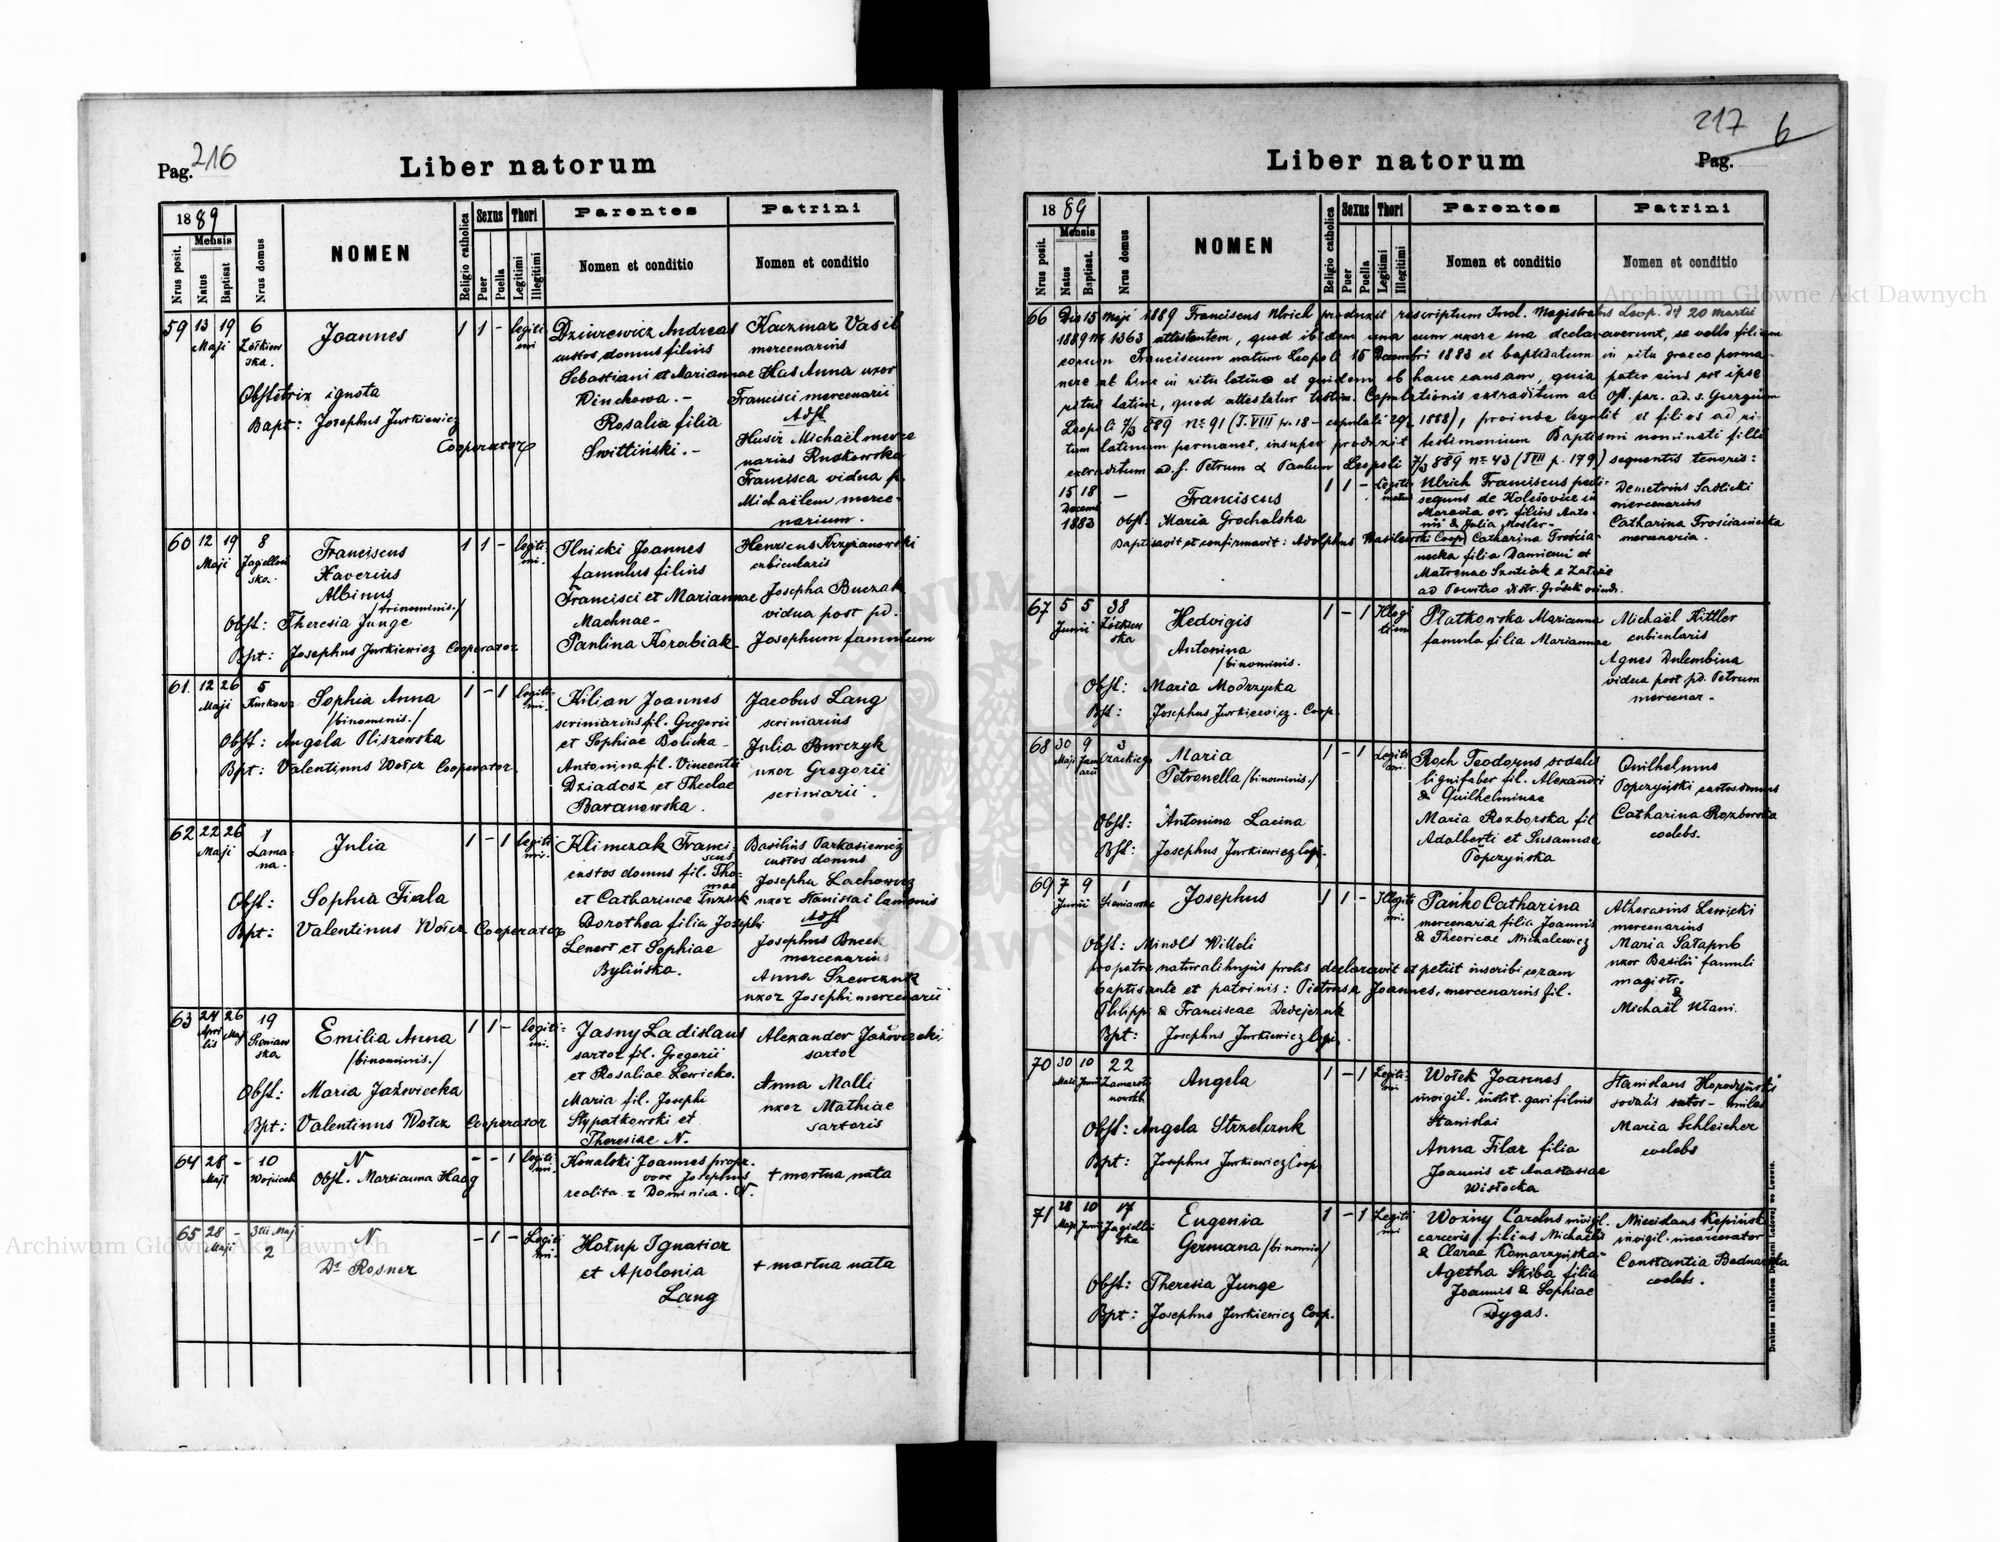 Pag. 216
Liber natorum
1889
Nrus posit.
Mensis
Natus
Baptisat
Nrus domus
NOMEN
Religio catholica
Sexus
Puer
Puella
Thori
Legitimi
Illegitimi
Parentes
Nomen et conditio
Patrini
Nomen et conditio
59 13 19 6 Joannes 1 1 - legiti Dziurewicz Andreas Kaczmar Vasil
Maji Żółkiew mi custos domus filius mercenarius
ska. Sebastiani et Mariannae Has Anna uxor
Obstetrix ignota Winckowa. - Francisci mercenarii
Bapt: Josephus Jurkiewicz Rosalia filia Adst
Cooperator Switliński. - Husir Michaël merce
narius Rudkowska
Francisca vidua p.
Michaëlem merce-
narium.
60 12 19 8 Franciscus 1 1 - legiti Ilnicki Joannes Henricus Krzyżanowski
Maji Jagielloń Xaverius mi. famulus filius cubicularis
ska. Albinus Francisci et Mariannae Josepha Buczak
/trinominis./ Machnae - vidua post pd.
Obst: Theresia Junge Paulina Korabiak. Josephum famulum
Bpt: Josephus Jurkiewicz Cooperator
61. 12 26 5 Sophia Anna 1 - 1 legiti Kilian Joannes Jacobus Lang
Maji Kurkowa /binominis./ mi. scriniarius fil. Gregorii scriniarius
Obst: Angela Pliszewska et Sophiae Bolicka - Julia Burczyk
Bpt: Valentinus Wołcz Cooperator Antonina fil. Vincentii uxor Gregorii
Dziadosz et Theclae scriniarii.
Baranowska.
62 22 26 1 Julia 1 - 1 legiti Klimczak Franci- Basilius Parkasiewicz
Maji Łama- mi. scus custos domus
na. custos domus fil. Tho- Josepha Lachowicz
mae
Obst: Sophia Fiala et Catharinae uxor Stanislai lanionis
Bpt: Valentinus Wołcz Cooperator Dorothea filia Josephi Adst
Lenert et Sophiae Josephus
Bylińska. mercenarius
Anna Szewczuk
uxor Josephi mercenarii
63 24 26 19 Emilia Anna 1 1 - legiti- Jasny Ladislaus Alexander Jażowiecki
Apri Maj Sieniaw /binominis./ mi. sartor fil. Gregorii sartor
lis ska et Rosaliae Lewicka.
Obst: Maria Jażwiecka Maria fil. Josephi Anna Malli
Bpt: Valentinus Wołcz Cooperator Stypatkowski et uxor Mathiae
Theresiae N. sartoris
64 28 - 10 N - - 1 legiti Kowalski Joannes propr. + mortua nata
Maji Wojciech Obst. Marianna Haag mi. Josephus
realita. z Dominica. N.
65 28 - 3tii Maji N - 1 - Legiti Hołup Ignatior + mortua nata
Maji 2 Dr Rosner mi. et Apolonia
Lang
217 6
Liber natorum
Pag.
1889
Nrus posit.
Mensis
Natus
Baptisat.
Nrus domus
NOMEN
Religio catholica
Sexus
Puer
Puella
Thori
Legitimi
Illegitimi
Parentes
Nomen et conditio
Patrini
Nomen et conditio
66 Die 15 Maji 1889 Franciscus Ulrich produxit rescriptum Incl. Magistratus Leop. dd 20 Martii
1889 Nr 1363 attestantem, quod ibidem una cum uxore sua declaraverunt, se velle filium
eorum Franciscum natum Leopoli 15 Decembri 1883 et baptisatum in ritu graeco perma-
nere ab hinc in ritu latino et quidem ob hanc causam, quia pater eius est ipse
ritus latini, quod attestatur testim. Copulationis extraditum ab Off. par. ad. s. Georgium
Leopoli 7/3 889 Nr 91 (T. VIII p. 18 - copulati 29/ 1888), proinde legalit et filios ad ri-
tum latinum permanet, insuper produxit testimonium Baptismi nominati filii
extraditum ad f: Petrum & Paulum Leopoli 7/3 889 Nr 43 (T III p. 179) sequentis tenoris:
15 18 - Franciscus 1 1 - Legiti Ulrich Franciscus pedi- Demetrius Sablicki
Decemb matus sequus de Holešovice in mercenarius
1883 Obst: Maria Grochalska Moravia or. filius Anto- Catharina Trościaniecka
nii & Julia Mosler - mercenaria.
Baptisavit et confirmavit: Adolphus Wasilewski Coop Catharina Trościa-
necka filia Damiani et
Matronae Szutiak e
ad distr. Gródek oriund.
67 5 5 38 Hedvigis 1 - 1 Illegi Płatkowska Marianna Michaël Kittler
Junii Żółkiew Antonina timi famula filia Mariannae cubicularis
ska /binominis. Agnes Dulembina
Obst: Maria Modrzycka vidua post pd. Petrum
Bpt: Josephus Jurkiewicz. Coop. mercenar.
68 30 9 3 Maria 1 - 1 Legiti Roch Teodorus sodalis Quilhelmus
Maji Jun Czackiego Petronella /binominis./ mi. lignifaber fil. Alexandri Popczyński custos domus
& Quilhelminae Catharina Rozborska
Obst: Antonina Lacina Maria Rozborska fil coelebs.
Bpt: Josephus Jurkiewicz Coop. Adalberti et Susannae
Popczyńska
69 7 9 1 Josephus 1 1 - Illegiti Pańko Catharina Athanasius Lewicki
Junii Sieniawska mi. mercenaria filia Joannis mercenarius
Obst: & Michalewicz Maria
pro patre naturali hujus prolis declaravit et petiit inscribi coram uxor Basilii famuli
baptisante et patrinis: Joannes, mercenarius fil. magistr.
Philippi & Franciscae &
Bpt: Josephus Jurkiewicz Coop. Michaël Ułani.
70 30 10 22 Angela 1 - 1 Legiti- Wołek Joannes Stanislaus Horodyński
Maii Junii Zamarsty mi invigil. instit. gari filius sodalis sutor -
nowska Stanislai Maria Schleicher
Obst: Angela Strzelczuk Anna Filar filia coelebs
Bpt: Josephus Jurkiewicz Coop Joannis et Anastasiae
Wisłocka
71 28 10 17 Eugenia 1 - 1 Legiti Woźny Carolus invigil. Miecislaus Kępiński
Maji Junii Jagielloń Germana /binominis/ mi carceris filius Michaelis invigil. incarcerator
ska & Clarae Komarzyńska - Constantia Bednarska
Obst: Theresia Junge Agetha Skiba filia coelebs.
Bpt: Josephus Jurkiewicz Coop. Joannis & Sophiae
Dygas.
Drukiem i nakładem Drukarni Ludowej we Lwowie.
Archiwum Główne Akt Dawnych
Archiwum Główne Akt Dawnych